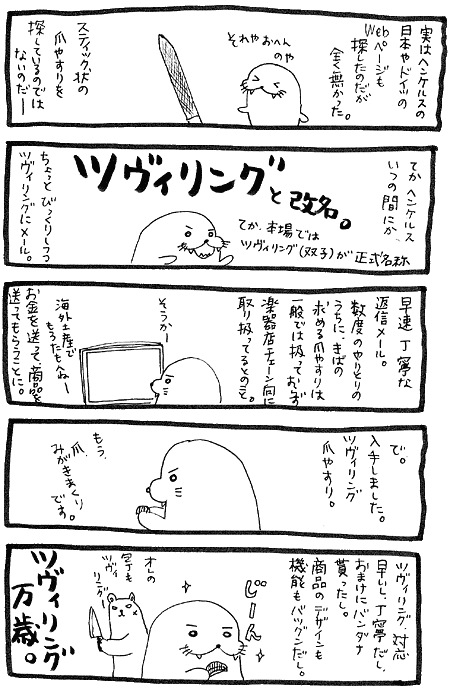 実はヘンケルスの
日本やドイツの
Webページも
探したのだが
全く無かった。
それやおへん
のや
スティック状の
爪やすりを
探しているのでは
ないのだ——
てか ヘンケルス
いつの間にか、
ツヴィリングと改名。
てか、本場では
ツヴィリング(双子)が正式名称
ちょっとびっくりしつつ
ツヴィリングにメール。
早速丁寧な
返信メール。
数度のやりとりの
うちに、きばの
求める爪やすりは
一般では扱っておらず
楽器店チェーン向に
取り扱ってるとのこと。
そうかー
海外土産で
もろたもんねー
お金を送って商品を
送ってもらうことに。
で。
入手しました。
ツヴィリング
爪やすり。
もう、
爪、
みがきまくり
です。
ツヴィリング対応
早いし、丁寧だし、
おまけにバンダナ
貰ったし。
商品のデザインも
機能もバツグンだし。
じーん
オレの
包丁も
ツヴィ
リング
ツヴィリング
万歳。